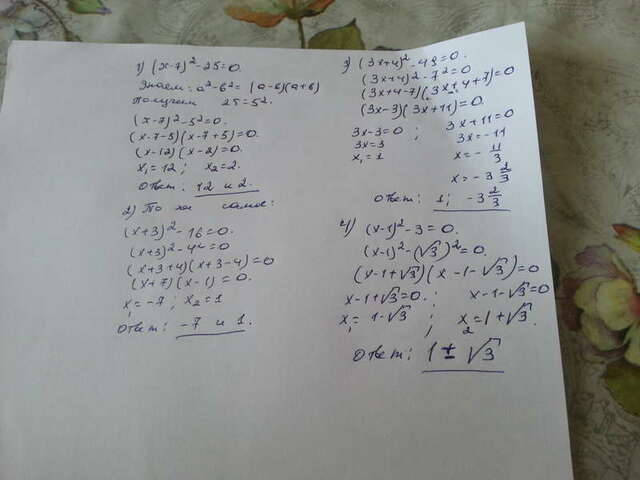 1) (x-7)² - 25 = 0.
Знаем: a² - b² = (a-b)(a+b)
Получим 25 = 5².
(x-7)² - 5² = 0.
(x-7-5)(x-7+5) = 0.
(x-12)(x-2) = 0.
x₁ = 12; x₂ = 2.
Ответ: 12 и 2.
2) То же самое:
(x+3)² - 16 = 0.
(x+3)² - 4² = 0
(x+3+4)(x+3-4) = 0
(x+7)(x-1) = 0.
x₁ = -7; x₂ = 1
Ответ: -7 и 1.
3) (3x+4)² - 49 = 0.
(3x+4)² - 7² = 0
(3x+4-7)(3x+4+7) = 0
(3x-3)(3x+11) = 0.
3x-3 = 0; 3x+11 = 0
3x = 3 3x = -11
x₁ = 1 x = - 11/3
x = -3 2/3
Ответ: 1; -3 2/3
4) (x-1)² - 3 = 0.
(x-1)² - (√3)² = 0.
(x-1+√3)(x-1-√3) = 0
x-1+√3 = 0; x-1-√3 = 0
x₁ = 1-√3; x₂ = 1+√3.
Ответ: 1 ± √3